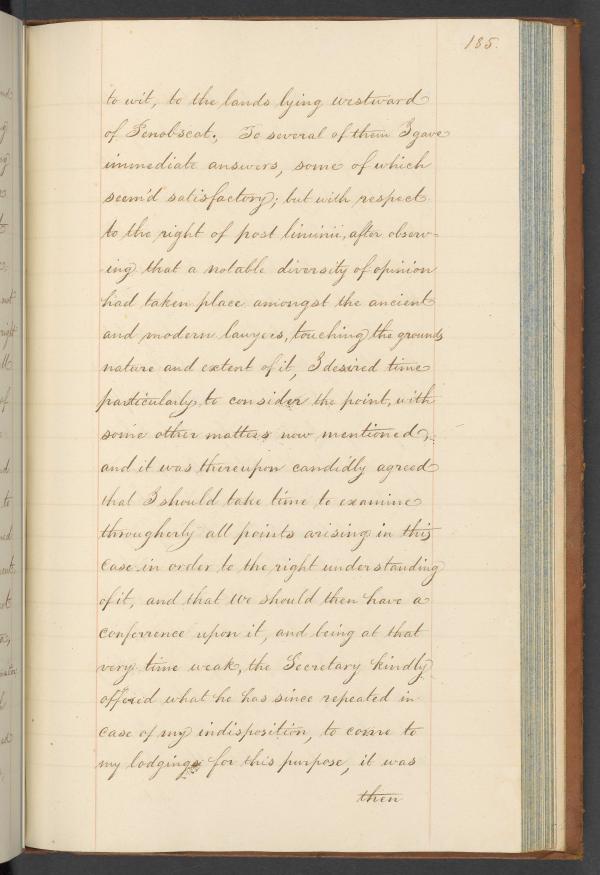 185.
to wit, to the lands lying westward
of Penobscot., To several of them I gave
immediate answers, some of which
seem'd satisfactory; but with respect
to the right of post liminii, after observ=
ing that a notable diversity of opinion
had taken place amongst the ancient
and modern lawyers, touching the grounds
nature and extent of it, I desired time
particularly to consider the point, with
some other matters now mentioned;
and it was thereupon candidly agreed
that I should take time to examine
througherly all points arising in this
Case in order to the right understanding
of it, and that we should then have a
conferrence upon it, and being at that
very time weak, the Secretary kindly
offered what he has since repeated in
case of my indisposition, to come to
my lodgings for this purpose, it was
then